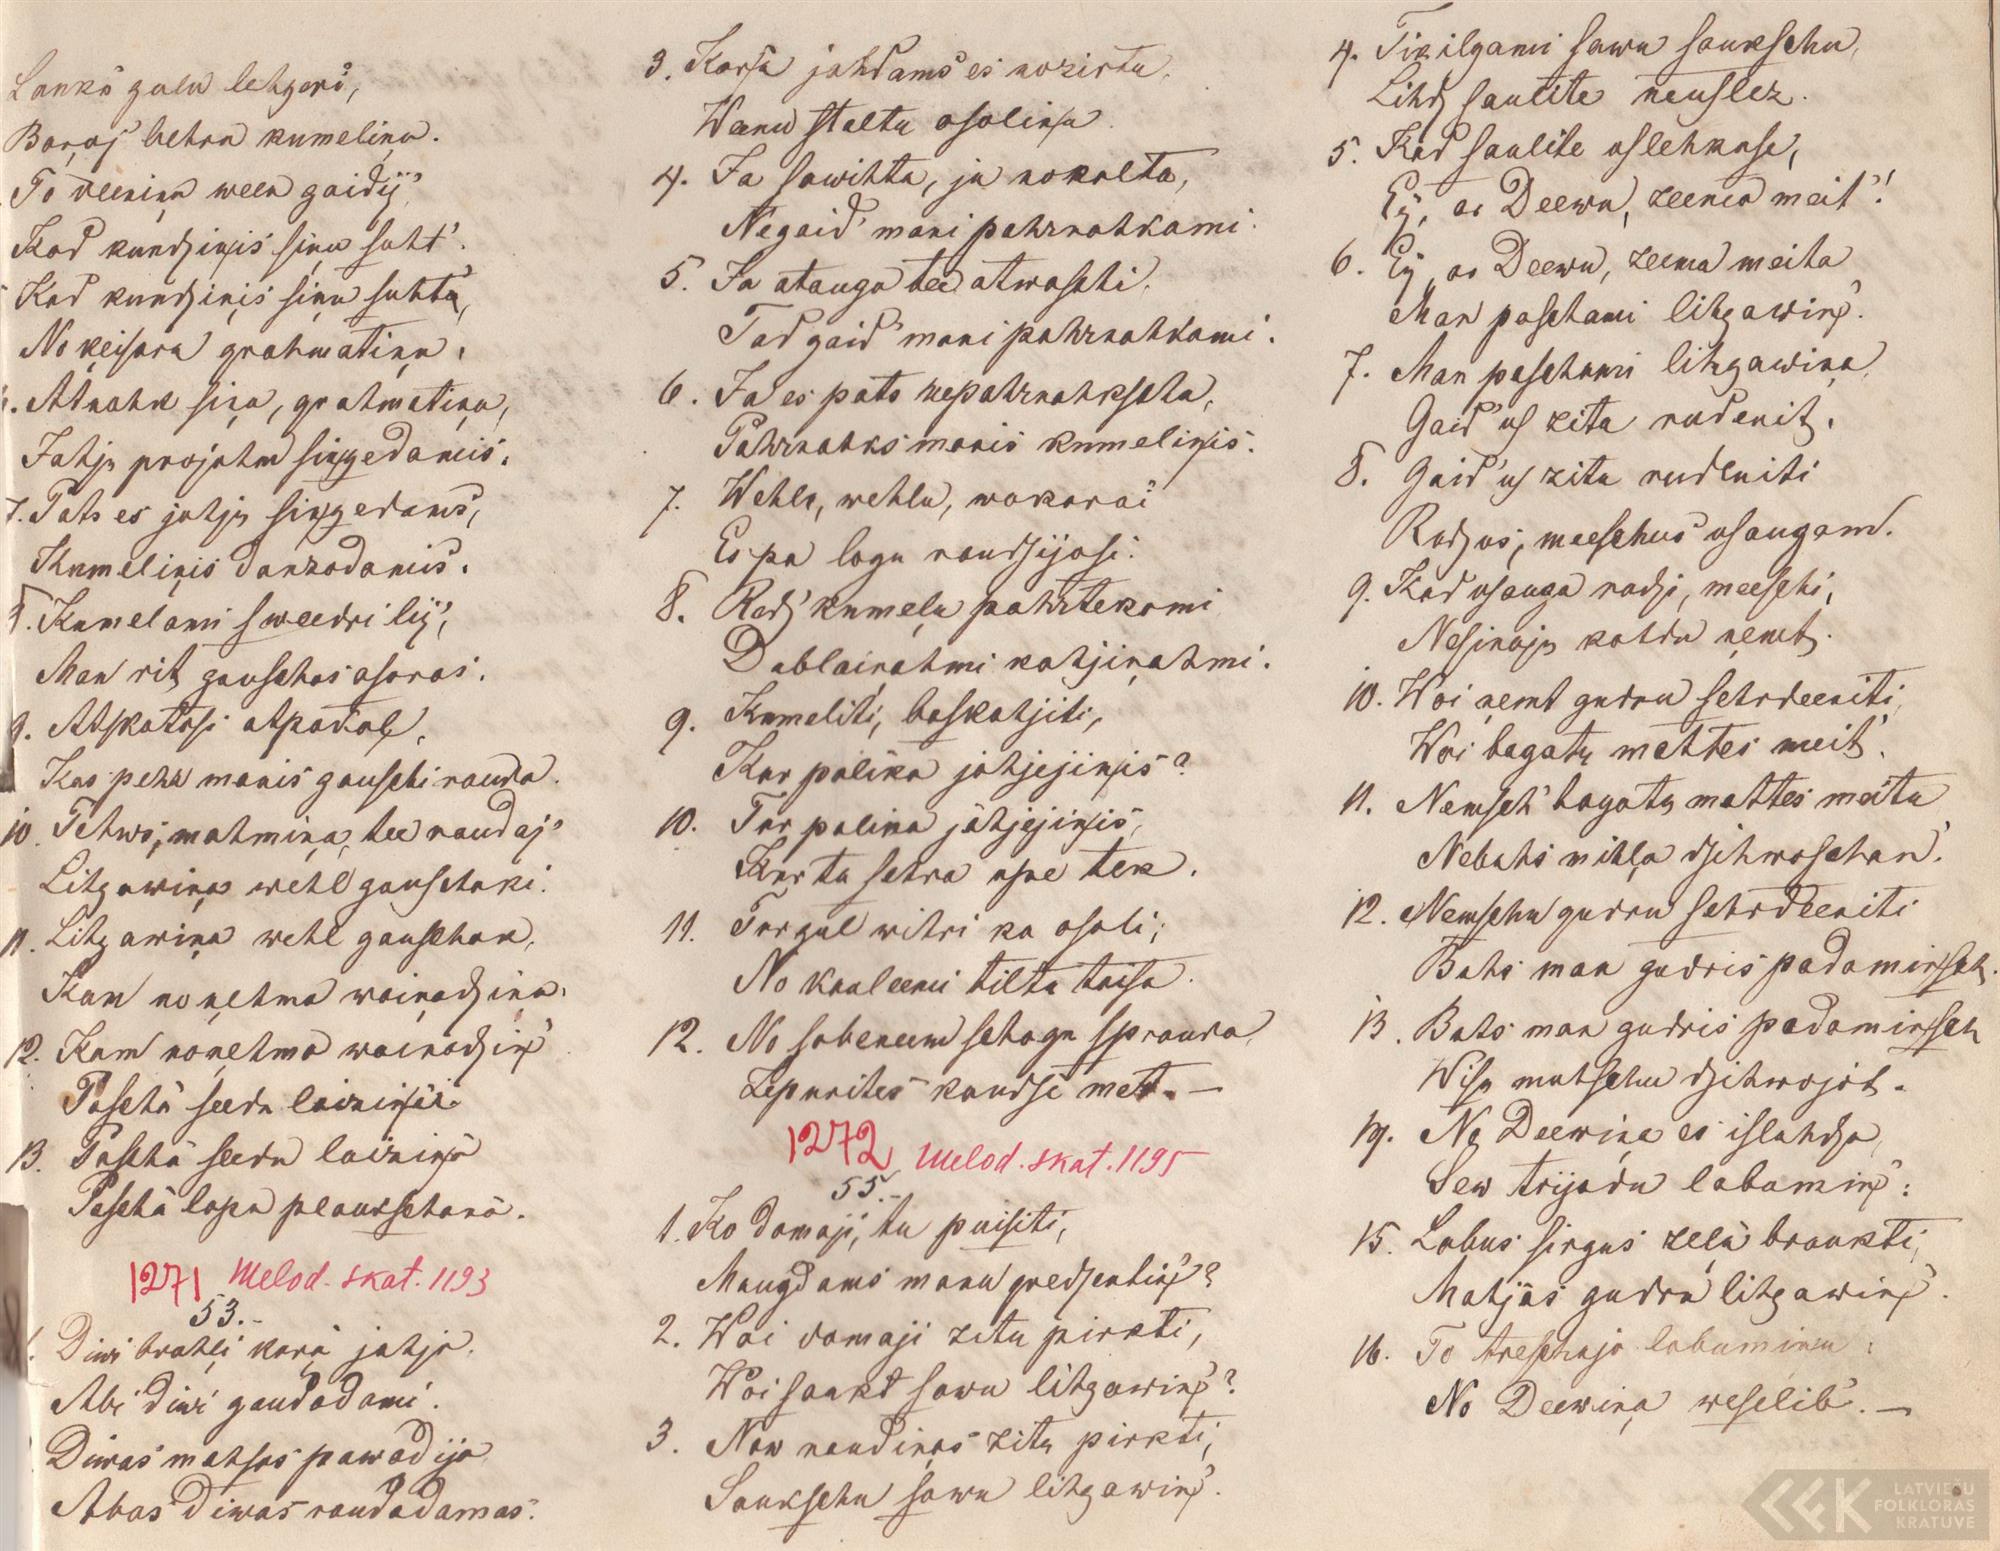 Lankā guļu lehģeri,
Baŗoj behru kumeliņu.
To deeniņu ween gaidij',
Kad kundziņis siņu suht'.
Kad kundziņis siņu suhta,
No keisara grahmatiņu.
6. Atnahk siņa, grahmatiņa,
Jahju projam singedamis.
7. Pats es jahju singedams,
Kumeliņis danzadamis.
8. Kumeļami sweedri lij,
Man rit gauschas asaras.
9. Atskatosi atpakaļ,
Kas pehz manis gauschi rauda.
10. Tehws, mahmiņa, tee raudaj'
Lihgawiņas wehl gauschaki.
11. Lihgawiņa wehl gauschak,
Kam noņehma wainadziņu.
12. Kam noņehma wainadziņ'
Paschā seedu laiziņā.
13. Paschā seedu laiziņā
Paschā lapu plaukschanā.
1271 Melod. skat. 1193
53.
1. Diwi brahļi karā jahja,
Abi diwi gaudadami.
Diwas mahsas pawadija
Abas diwas raudadamas.
3. Karsā jahdams es nozirtu,
Weenu staltu osoliņu.
4. Ja sawihta, ja nokalta,
Negaid' mani pahrnahkami.
5. Ja atauga tee atwaschi,
Tad gaid' mani pahrnahkami.
6. Ja es pats nepahrnahkschu,
Pahrnahks manis kumeliņis.
7. Wehlu, wehlu, wakarai
Es pa logu raudsijosi.
8. Redz' kumeļu pahrtekami
Dubļainahmi kahjiņahmi.
9. Kumeliti, baskahjiti,
Kur palika jahjejiņis?
10. Tur palika jahjejiņis,
Kur ta sahra upe tek.
11. Tur gul wihri ka osoli,
No kauleemi tiltu taisa.
12. No sobeneem schogu sprauda,
Zepurites kaudsē met. —
1272 Melod. skat. 1195
55.
1. Ko domaji, tu puisiti,
Maugdams manu gredzentiņ'?
2. Woi domaji zitu pirkti,
Woi saukt sawu lihgawiņ'?
3. Naw naudiņas zitu pirkti,
Saukschu sawu lihgawiņ'.
4. Tik ilgami sawu saukschu,
Lihdz saulite neuslez.
5. Kad saulite uslehkuse,
Ej, ar Deewu, zeema meit'!
6. Ej, ar Deewu, zeema meita
Man paschami lihgawiņ'.
7. Man paschami lihgawiņa
Gaid' us zitu rudenit.
8. Gaid' us zitu rudeniti
Rudzus, meeschus usaugam.
9. Kad usauga rudzi, meeschi,
Nesinaju kahdu ņemt.
10. Woi ņemt gudru sehrdeeniti,
Woi bagatu mahtes meit'.
11. Nemsch' bagatu mahtes meitu
Nebuhs mihļa dzihwoschan'.
12. Nemschu gudru sehrdeeniti
Buhs man gudris padomiņsch.
13. Buhs man gudris padomiņsch
Wisu muhschu dzihwojot.
14. No Deewiņa es isluhdzu,
Sew trijadu labumiņ':
15. Labus sirgus zeļā braukti,
Mahjās gudru lihgawiņ'.
16. To treschajo labumiņu:
No Deewiņa weselib'. —
LATVIEŠU
FOLKLORAS
KRATUVE